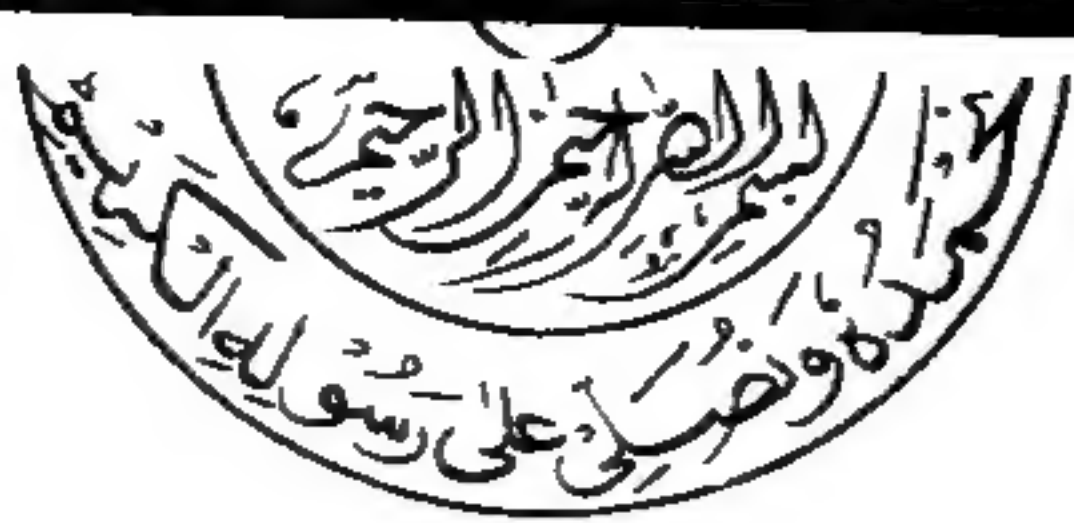 بسم الله الرحمن الرحيم
نَحْمَدُهٗ وَنُصَلِّیْ عَلٰی رَسُوْلِهِ الْكَرِیْمِ